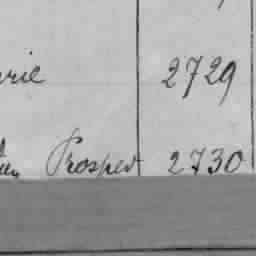 rie 2729
Prosper 2730